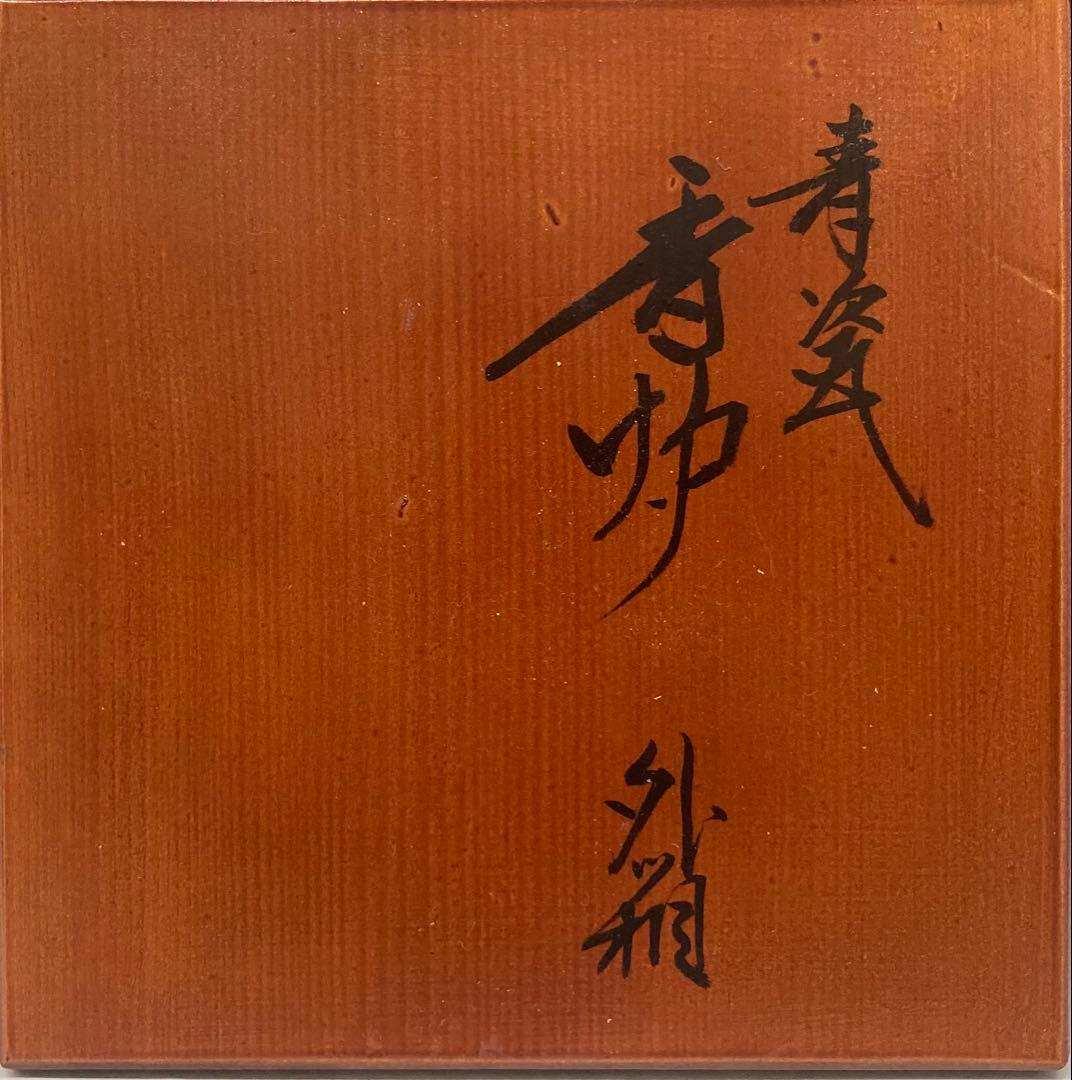 青瓷
香炉 外箱